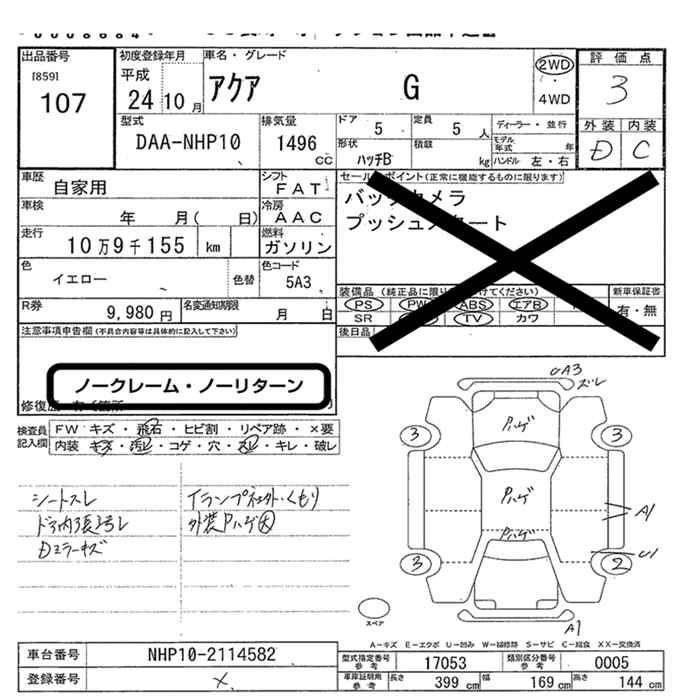 出品番号
[859]
107
初度登録年月
平成
24 10 月
車名・グレード
アクア G
2WD
4WD
評価点
3
外装 内装
D C
型式
DAA-NHP10
排気量
1496
CC
ドア
5
定員
5 人
ディーラー・並行
形状
ハッチB
積載
kg
モデル年式 年
ハンドル 左・右
車歴
自家用
シフト
FAT
車検
年 月( 日)
冷房
AAC
走行
10万9千155 km
燃料
ガソリン
色
イエロー
色替
色コード
5A3
R券
9,980 円
名変通知期限
月 日
セールスポイント(正常に機能するものに限ります)
バックカメラ
プッシュスタート
装備品
PS PW ABS エアB
SR TV カワ
後日品
新車保証書
有・無
注意事項申告欄(不具合内容等は具体的に記入して下さい)
ノークレーム・ノーリターン
検査員記入欄
FW キズ・飛石・ヒビ割・リペア跡・×要
内装 キズ・汚レ・コゲ・穴・スレ・キレ・破レ
シートスレ
ドア内張ヨゴレ
Dミラーキズ
外装Pハゲ大
UA3
ズレ
Pハゲ
Pハゲ
Pハゲ
3
3
3
2
A1
U1
A1
スペア
A-キズ E-エクボ U-凹み W-補修跡 S-サビ C-腐食 XX-交換済
車台番号
NHP10-2114582
登録番号
×
型式指定番号
参考
17053
類別区分番号
参考
0005
車庫証明用
参考
長さ 399 cm
幅 169 cm
高さ 144 cm